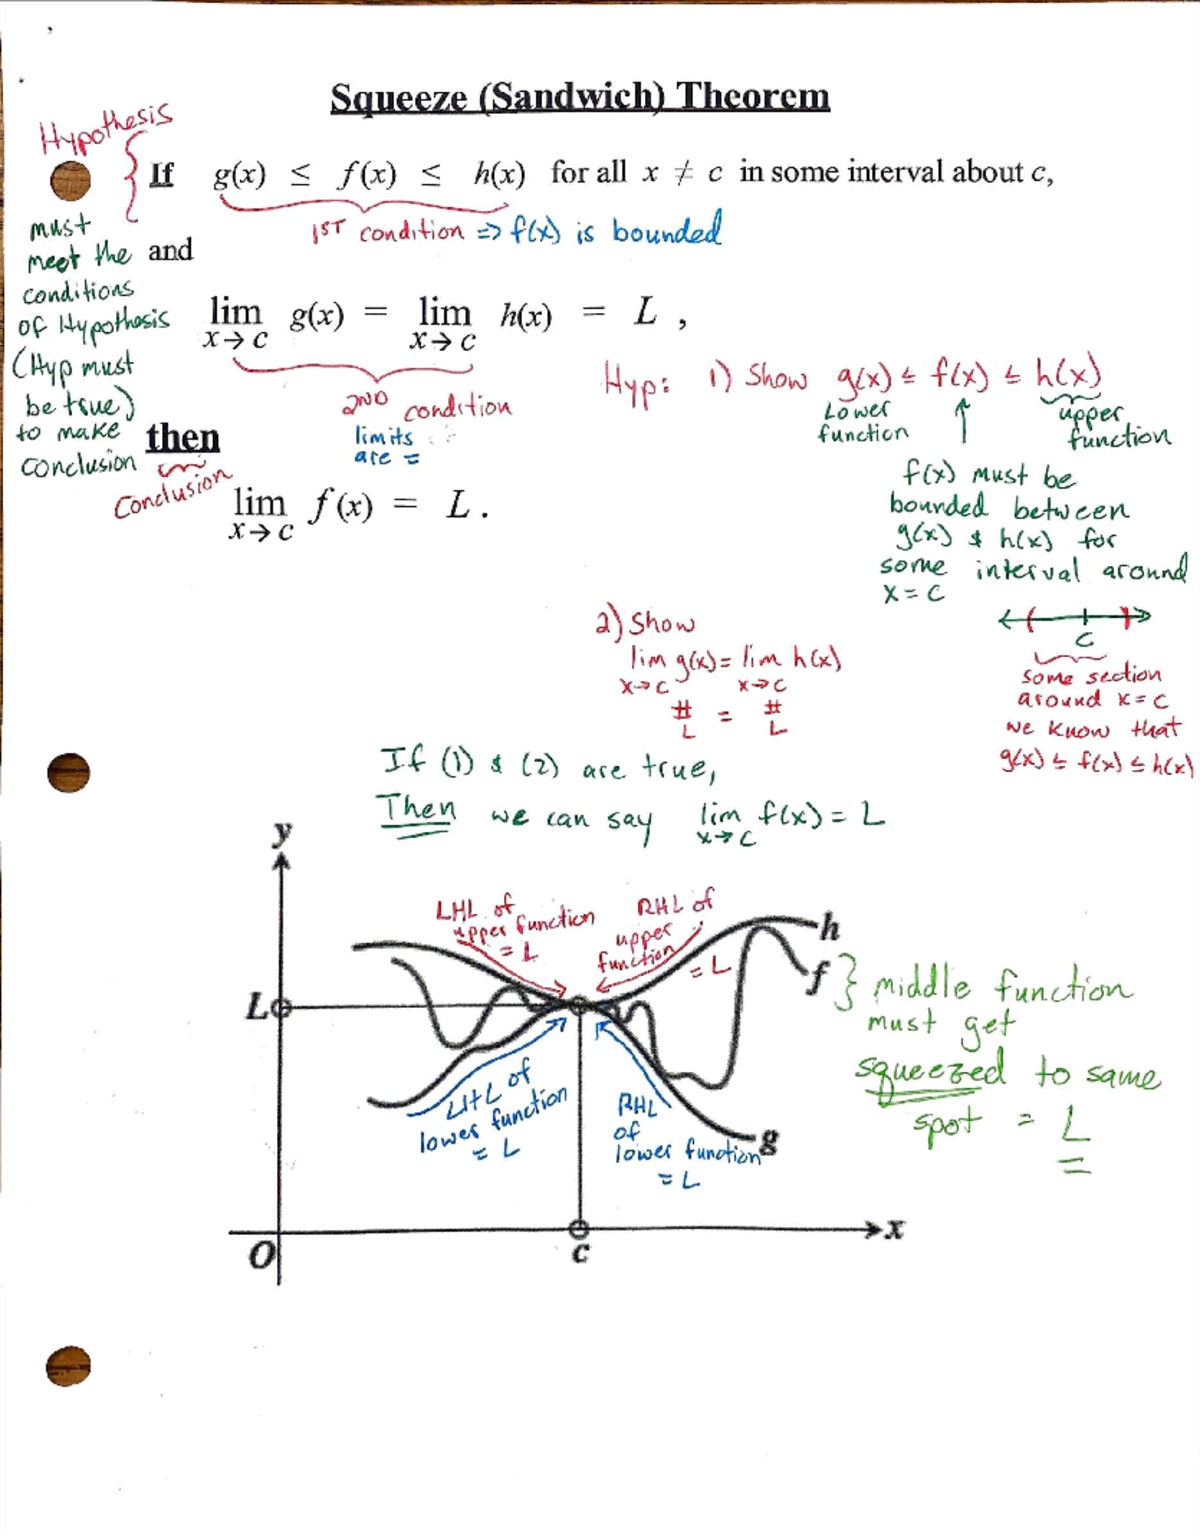 Squeeze (Sandwich) Theorem
Hypothesis
If g(x) ≤ f(x) ≤ h(x) for all x ≠ c in some interval about c,
1ST condition => f(x) is bounded
and
must
meet the
conditions
of Hypothesis
(Hyp must
be true)
to make
conclusion
lim g(x) = lim h(x) = L ,
x→c x→c
2ND condition
limits
are =
then
Conclusion
lim f(x) = L .
x→c
Hyp: 1) Show g(x) ≤ f(x) ≤ h(x)
Lower
function
upper
function
f(x) must be
bounded between
g(x) & h(x) for
some interval around
x = c
c
some section
around x = c
we know that
g(x) ≤ f(x) ≤ h(x)
2) Show
lim g(x) = lim h(x)
x→c x→c
# = #
L L
If (1) & (2) are true,
Then we can say lim f(x) = L
x→c
y
LHL of
upper function
= L
RHL of
upper
function
= L
h
f } middle function
must get
squeezed to same
spot = L
L
LHL of
lower function
= L
RHL
of
lower function
= L
g
O
c
x